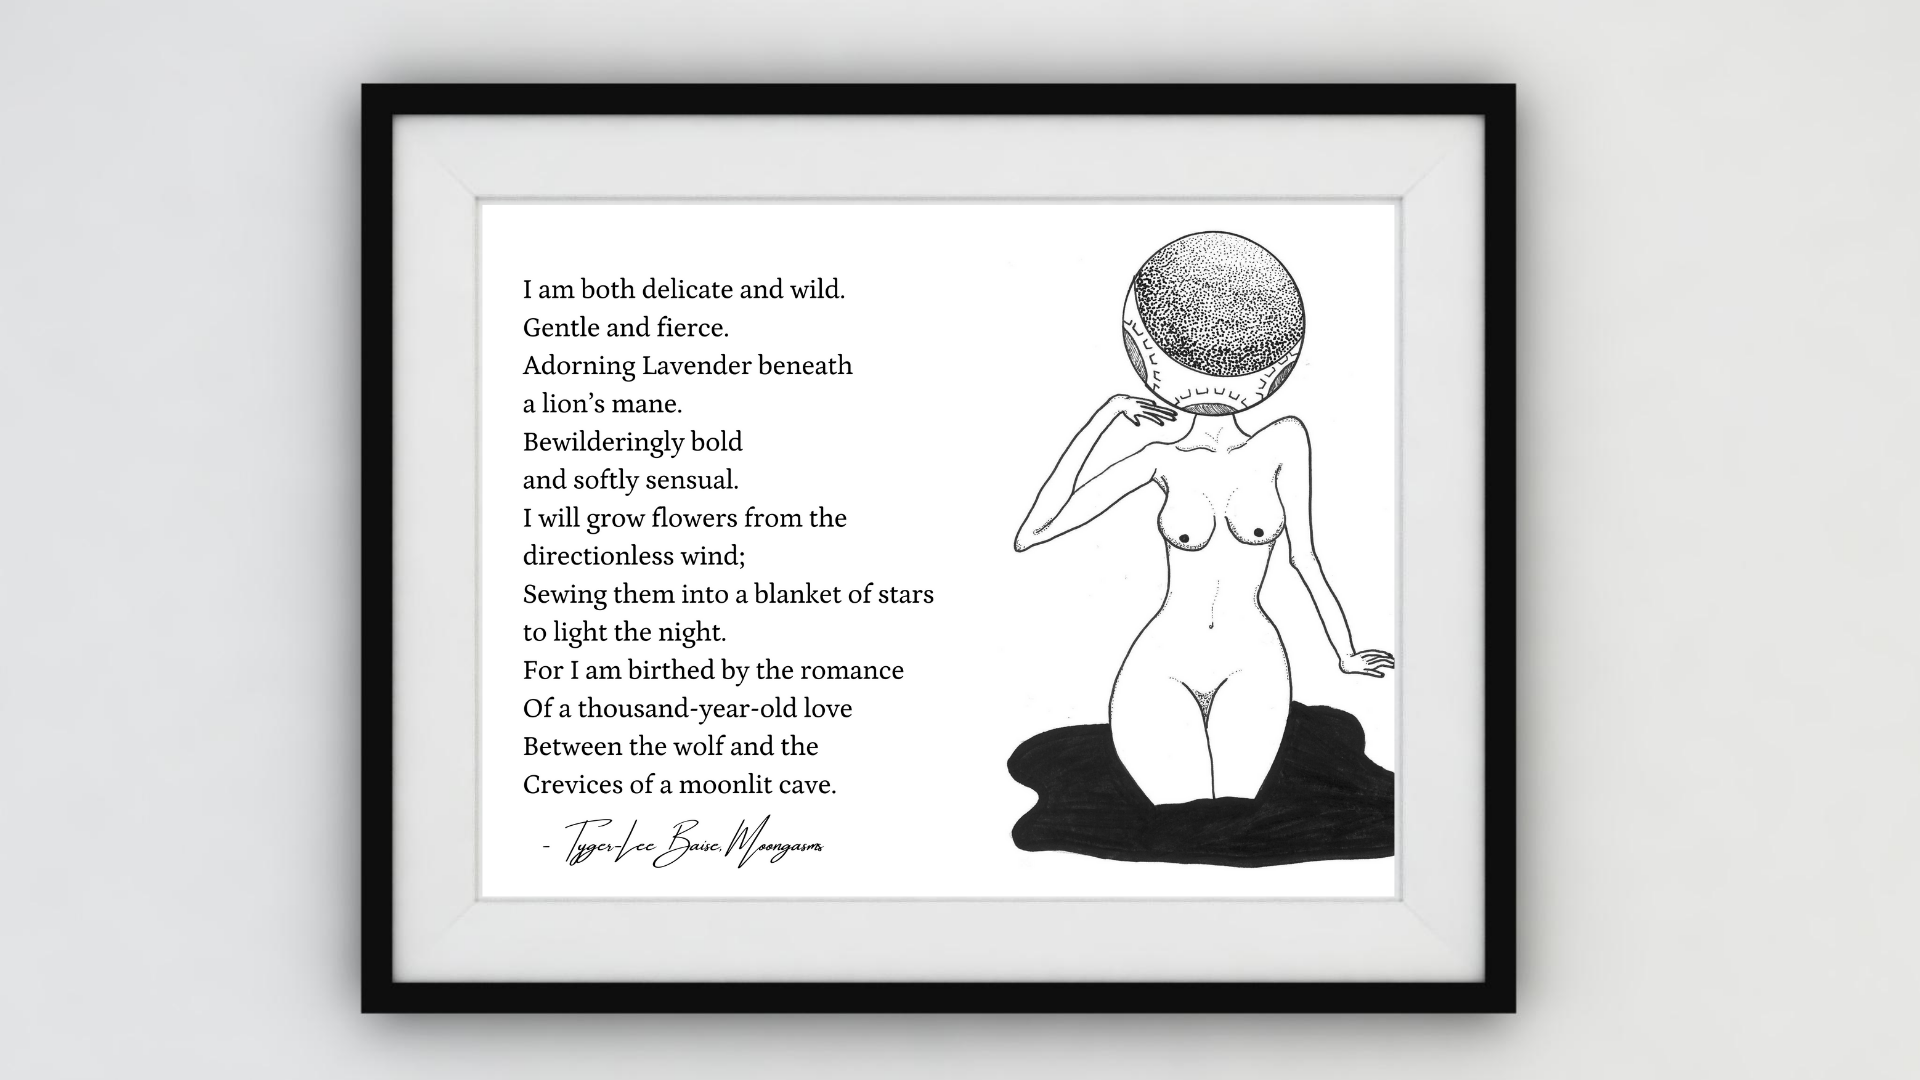 I am both delicate and wild.
Gentle and fierce.
Adorning Lavender beneath
a lion’s mane.
Bewilderingly bold
and softly sensual.
I will grow flowers from the
directionless wind;
Sewing them into a blanket of stars
to light the night.
For I am birthed by the romance
Of a thousand-year-old love
Between the wolf and the
Crevices of a moonlit cave.
- Tyger-Lee Baise, Moongasms